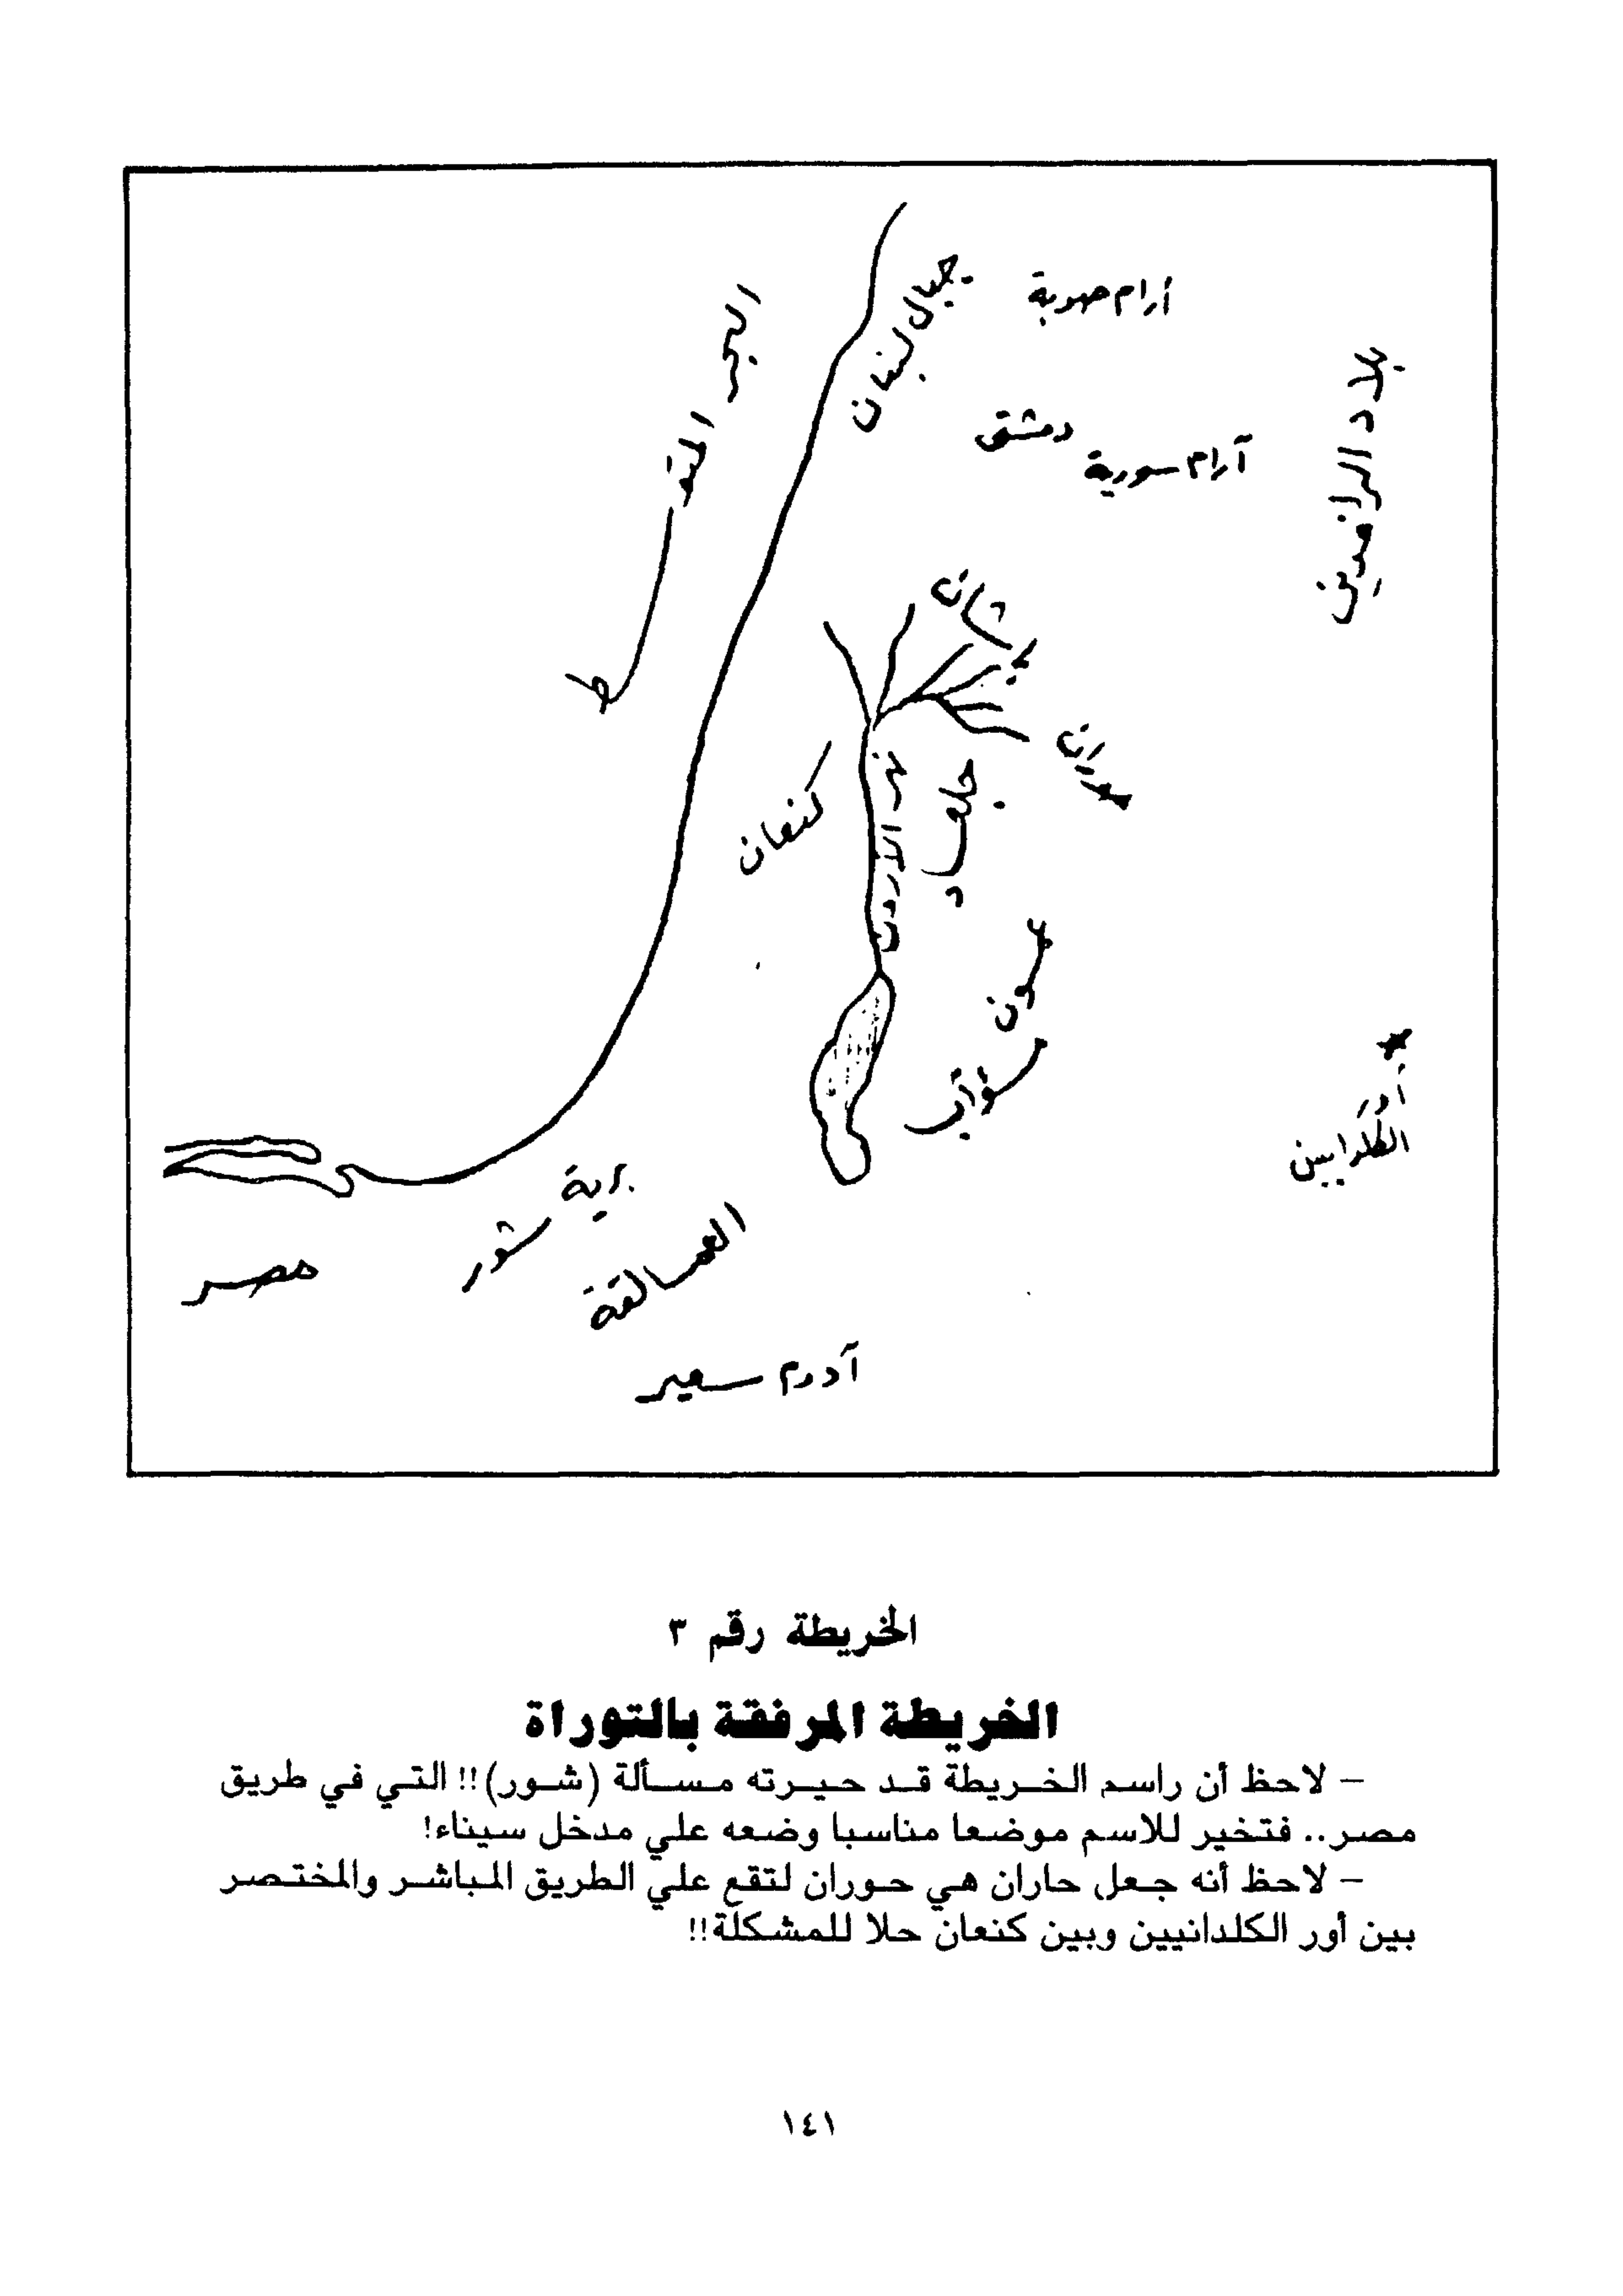 جبال لبنان
أرام صوبة
البحر المتوسط
بلاد الرافدين
دمشق
آرام سورية
باشان
حوران
نهر الأردن
جلعاد
كنعان
عمون
مؤاب
أور
الكلدانيين
برية
شور
العمالقة
مصر
آدوم سعير
الخريطة رقم ٣
الخريطة المرفقة بالتوراة
– لاحظ أن راسم الخريطة قد حيرته مسألة (شور)!! التي في طريق
مصر.. فتخير للاسم موضعا مناسبا وضعه علي مدخل سيناء!
– لاحظ أنه جعل حاران هي حوران لتقع علي الطريق المباشر والمختصر
بين أور الكلدانيين وبين كنعان حلا للمشكلة!!
١٤١